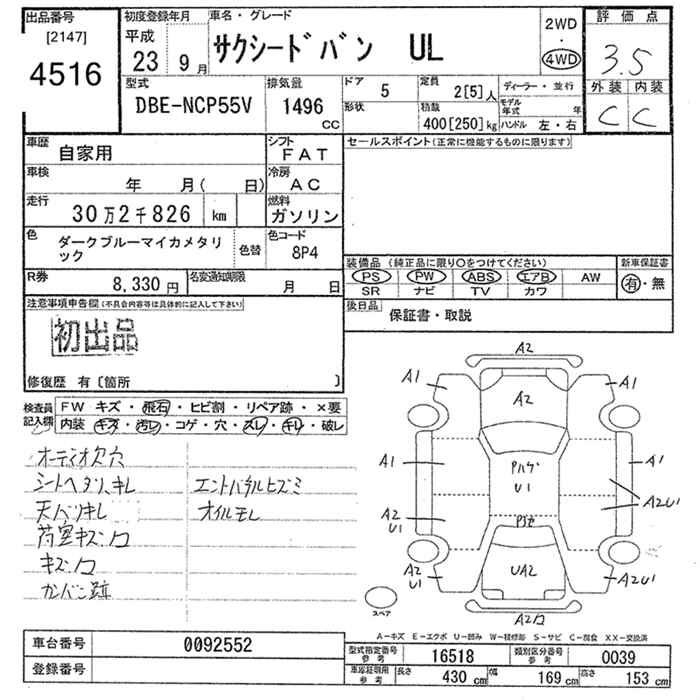 出品番号
[2147]
4516
初度登録年月
平成
23 9月
車名・グレード
サクシードバン UL
2WD
・
4WD
評価点
3.5
外装 内装
C C
型式
DBE-NCP55V
排気量
1496
CC
ドア
5
形状
定員
2[5]人
積載
400[250]kg
ディーラー・並行
モデル年式 年
ハンドル 左・右
車歴
自家用
シフト
FAT
車検
年 月( 日)
冷房
AC
走行
30万2千826 km
燃料
ガソリン
色
ダークブルーマイカメタリック
色替
色コード
8P4
R券
8,330円
名変通知期限
月 日
セールスポイント(正常に機能するものに限ります)
装備品(純正品に限り〇をつけてください)
PS PW ABS エアB AW
SR ナビ TV カワ
新車保証書
有・無
後日品
保証書・取説
注意事項申告欄(不具合内容等は具体的に記入して下さい)
初出品
修復歴 有〔箇所 〕
検査員記入欄
FW キズ・飛石・ヒビ割・リペア跡・×要
内装・キズ・汚レ・コゲ・穴・スレ・キレ・破レ
オーディオ欠穴
シートヘタリ、キレ
エントパネルヒズミ
天バリキレ
オイルモレ
荷室キズ、凹
キズ、凹
カンバン跡
A2
A1
A1
A2
A1
A1
U1
A2
U1
A2U1
A2
U1
UA2
A2U1
A2凹
スペア
A-キズ E-エクボ U-凹み W-補修跡 S-サビ C-腐食 XX-交換済
車台番号
0092552
登録番号
型式指定番号
参考
16518
類別区分番号
参考
0039
車庫証明用
参考
長さ
430 cm
幅
169 cm
高さ
153 cm